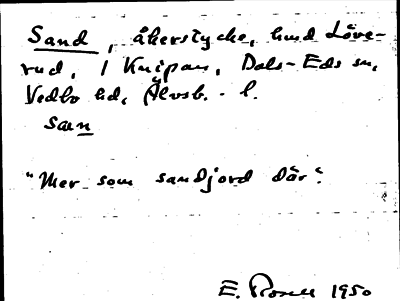 Sand, åkerstycke, hmd Löve-
rud, 1 Knipan, Dals-Eds sn,
Vedbo hd, Älvsb. l.
san
"Mer som sandjord där".
E. Rosell 1950